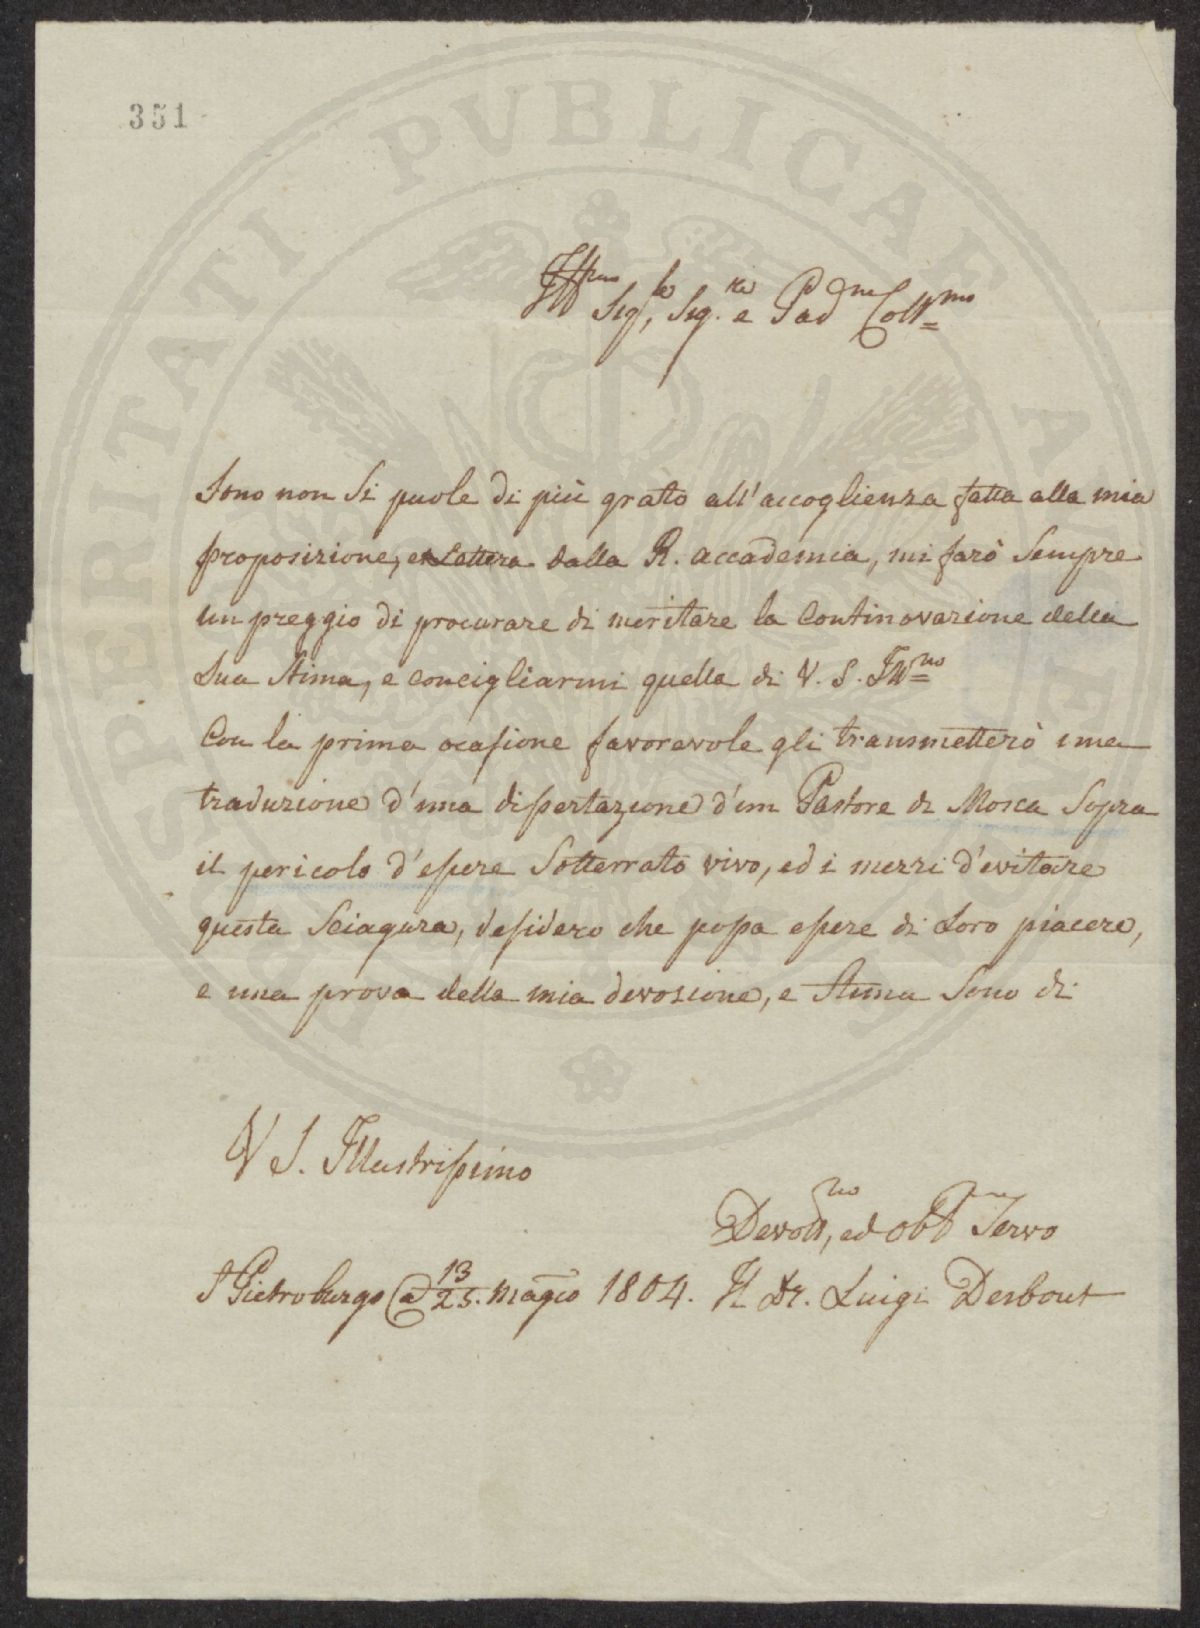 351
PROSPERITATI PVBLICAE AVGENDAE
Ill.mo Sig.re, Sig.re e Pad.ne Coll.mo
Sono non si puole di più grato all'accoglienza fatta alla mia
proposizione, e lettera dalla R. accademia, mi farò sempre
un preggio di procurare di meritare la continovazione della
sua stima, e concigliarmi quella di V. S. Ill.mo
Con la prima ocasione favorevole gli transmetterò una
traduzione d'una dissertazione d'un Pastore di Mosca sopra
il pericolo d'essere sotterrato vivo, ed i mezzi d'evitare
questa sciagura, desidero che possa essere di loro piacere,
e una prova della mia devozione, e stima sono di
V S. Illustrissimo
Devot.mo, ed obb.mo servo
S Pietroburgo a 13/25. maggio 1804. Il Dr. Luigi Desbout